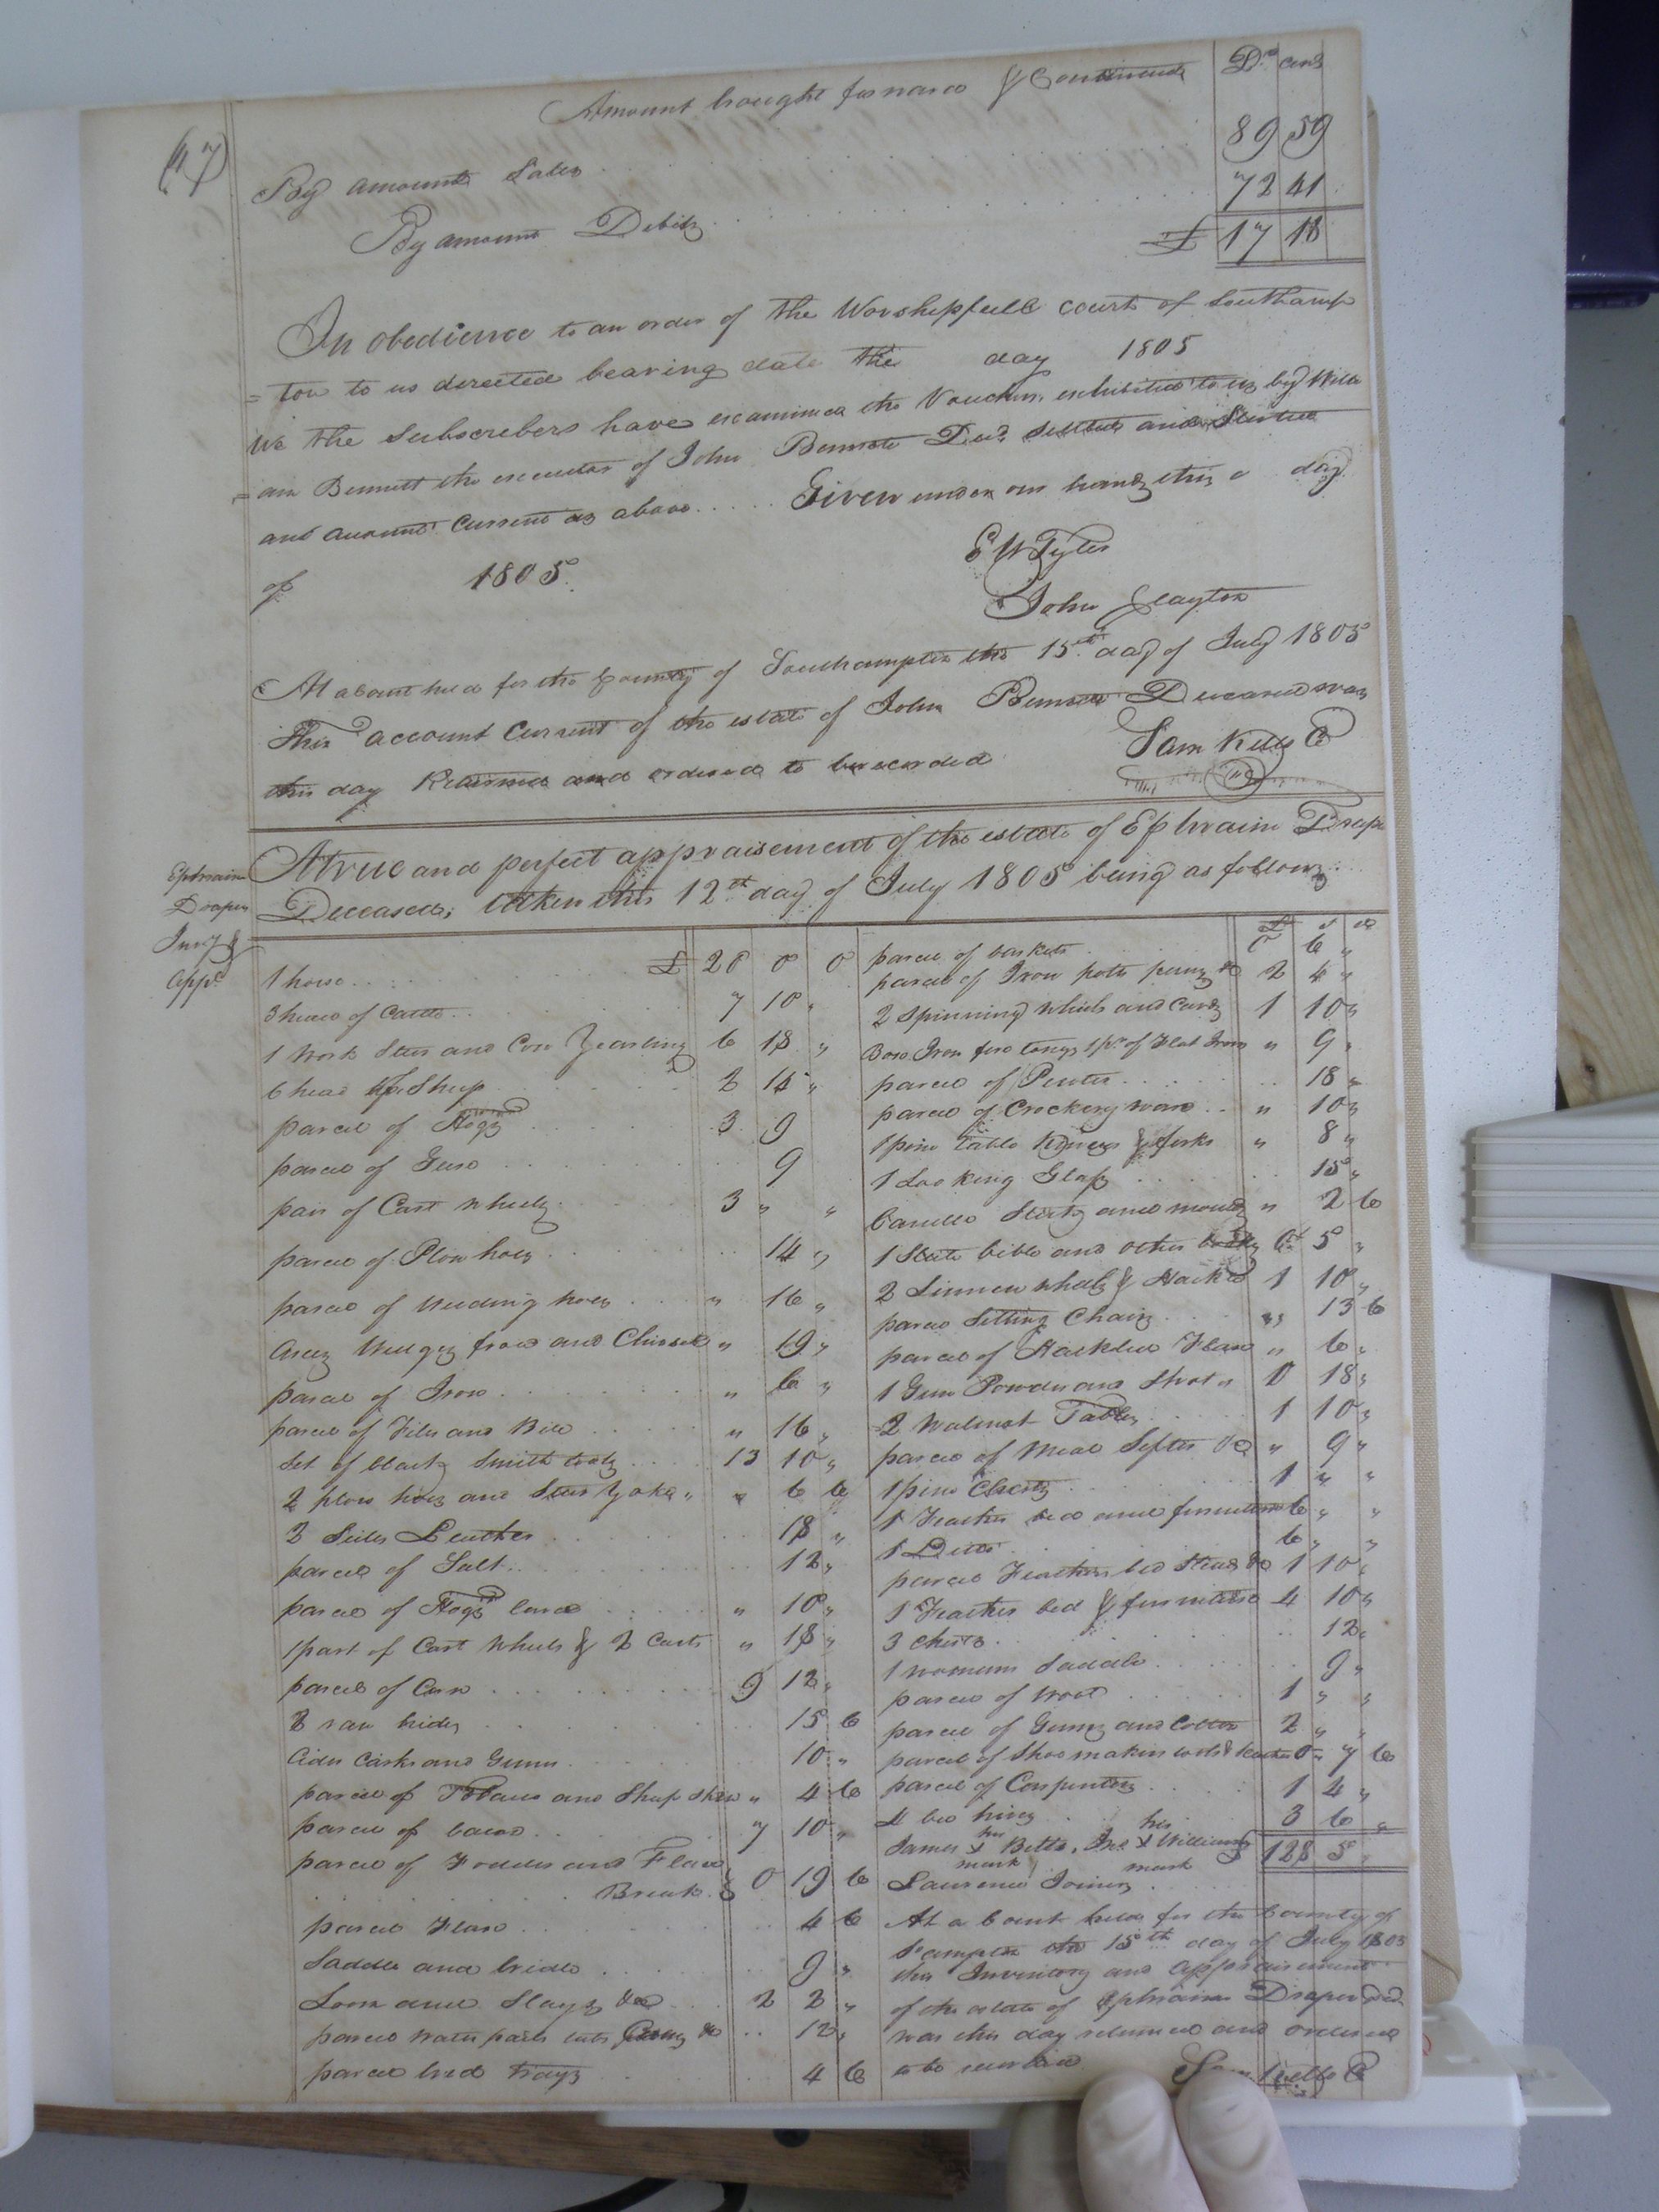 Amount brought forward & Continued
Drs cents
(17)
By amount Sales 89 59
By amount Debits 72 41
£ 17 18
In obedience to an order of the Worshipfull court of Southamp
= ton to us directed bearing date the day 1805
We the Subscribers have examined the Vouchers exhibited to us by Willi
= am Bennett the executor of John Bennett Decd and
and account Current as above . . . . . Given under our hands this day
of 1805.
E W Tyler
John Clayton
At a Court held for the County of Southampton the 15th day of July 1805
This account Current of the estate of John Bennett Deceased was
this day Returned and ordered to be recorded
Sam Kello C
Ephraim
Draper
Invy &
appt
A true and perfect appraisement of the estate of Ephraim Drape
Deceased, taken this 12th day of July 1805 being as follows
1 horse . . . . £ 20 0 0
3 head of Cattle . . 7 10 "
1 Work Steer and Cow Yearling 6 18 "
6 head of Sheep 2 14 "
parcel of Hogs 3 9
parcel of Geese . . . 9
pair of Cart wheels 3 " "
parcel of Plow hoes . . . 14 "
parcel of Weeding hoes . . . " 16 "
Axes Wedges frow and Chissel " 19 "
parcel of Iron . . . " 6 "
parcel of Files and Bell . . . " 16 "
Set of black Smith tools . . . 13 10 "
2 plow hoes and Steer Yoke " " 6 6
2 Sides Leather . . . 18 "
parcel of Salt . . . 12 "
parcel of Hogs lard . . . " 10 "
1 part of Cart Wheels & 2 Carts " 18 "
parcel of Corn . . . 9 12 "
2 raw hides . . . 15 6
Cider Casks and Gums . . . 10 "
parcel of Tobacco and Sheep Skin " 4 6
parcel of bacon . . . 7 10 "
parcel of Fodder and Flax
Break . 0 19 6
parcel Flax . . . 4 6
Saddle and bridle . . . 9 "
Loom and Slays &c 2 2 "
parcel water pails tubs &c . . 12 "
parcel bred trays 4 6
£ s d
parcel of baskets . . . 0 6 "
parcel of Iron potts &c 2 4 "
2 Spinning wheels and Cards 1 10 "
Box Iron fire tongs 1 pr of Flat Irons " 9 "
parcel of Pewter . . . 18 "
parcel of Crockery ware . . " 10 "
1 pine table knives & forks " 8 "
1 Looking Glass . . . 15 "
Candle Sticks and moulds " 2 6
1 bible and other books 0 5 "
2 Linnen wheels & Hackle 1 10 "
parcel Sitting Chairs . . . " 13 6
parcel of Hackled Flax " 6 "
1 Gun Powder and Shot " 0 18 "
2 Walnut Tables . . . 1 10 "
parcel of Meal Sifters &c " 9 "
1 pine Chest . . . 1 " "
1 Feather bed and furniture 6 " "
1 Ditto . . . 6 " "
parcel Feathers bed Stead &c 1 10 "
1 Feather bed & furniture 4 10 "
3 Chests . . . 12 "
1 womans Saddle . . . 9 "
parcel of Wool . . . 1 " "
parcel of Gums and Cotton 2 " "
parcel of Shoemakers tools & leather 0 7 6
parcel of Carpenters . . . 1 4 "
4 bee hives . . . 3 6 "
his his
James X Bitts, Jno X Williams 128 5 "
mark mark
Laurence Joiner
At a Court held for the County of
Sampton the 15th day of July 1805
this Inventory and appraisement
of the estate of Ephraim Draper Decd
was this day returned and ordered
to be recorded
Sam Kello C